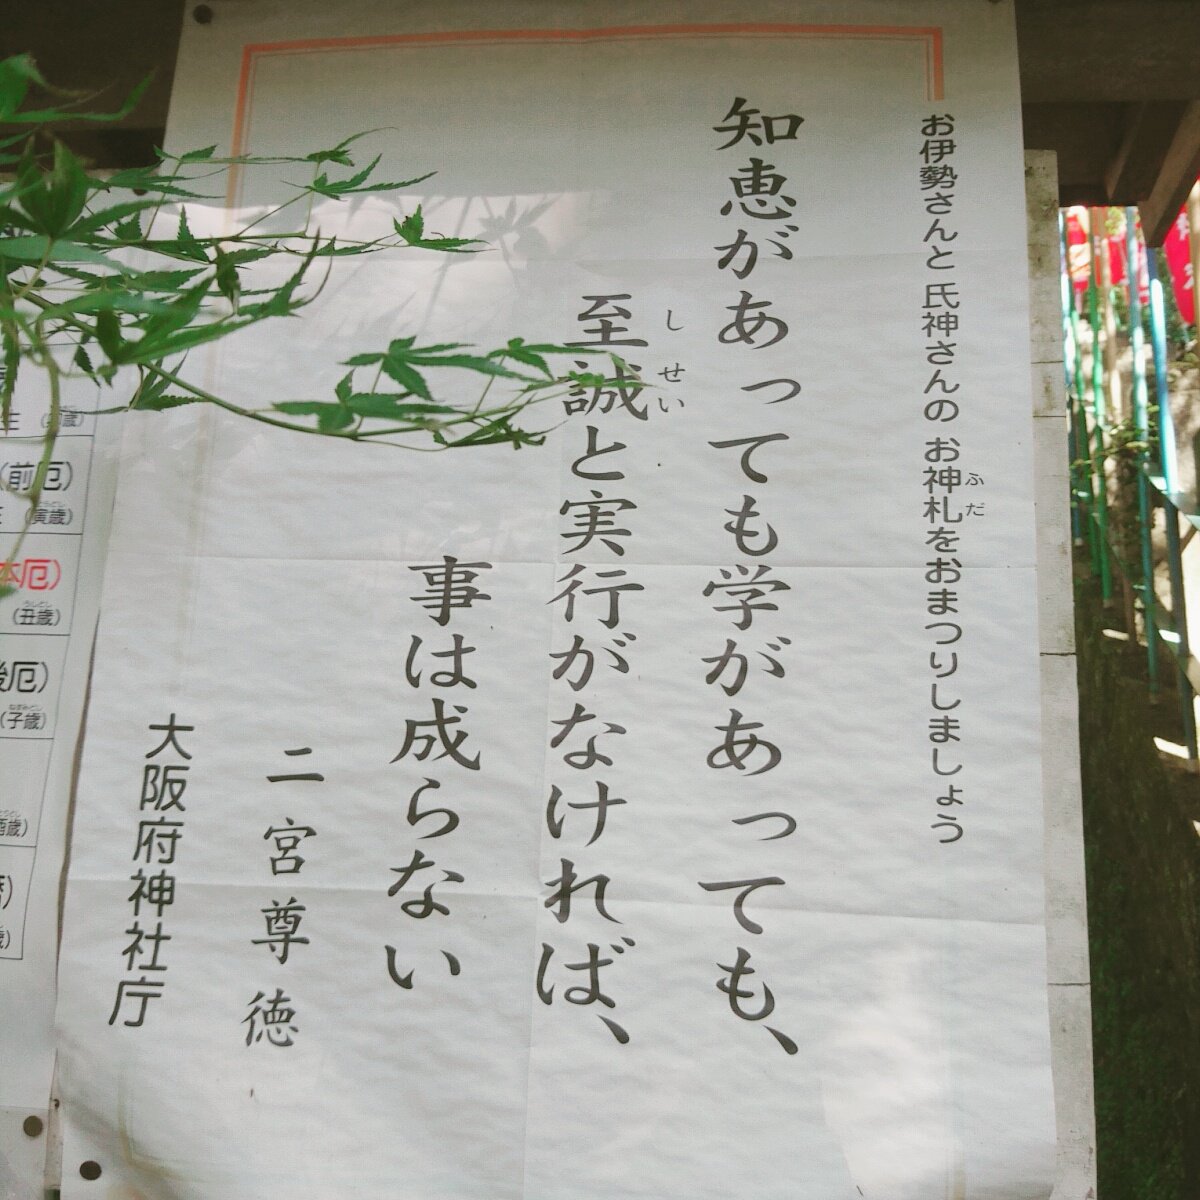 お伊勢さんと 氏神さんの お神札をおまつりしましょう
ふだ
知恵があっても学があっても、
至誠と実行がなければ、
しせい
事は成らない
二宮尊徳
大阪府神社庁
(前厄)
(寅歳)
本厄)
(丑歳)
後厄)
(子歳)